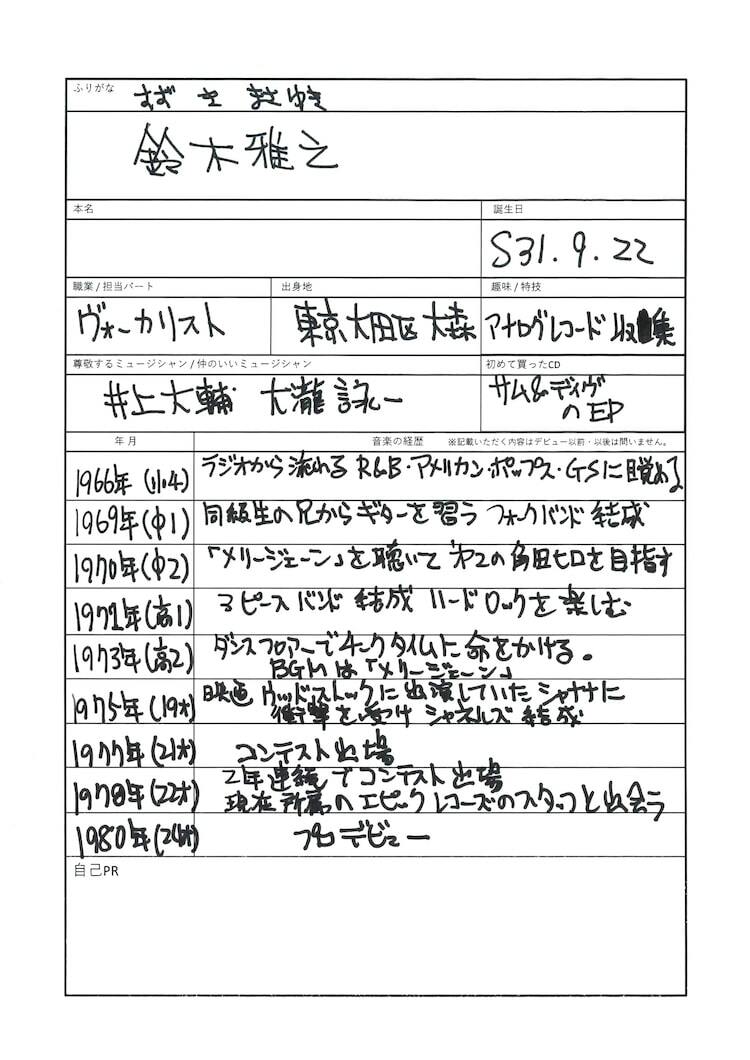 ふりがな
すずき まさゆき
鈴木雅之
本名
誕生日
S31.9.22
職業 / 担当パート
出身地
趣味 / 特技
ヴォーカリスト
東京大田区大森
アナログレコード収集
尊敬するミュージシャン / 仲のいいミュージシャン
初めて買ったCD
井上大輔 大瀧詠一
サム&デイヴ
のEP
年月
音楽の経歴 ※記載いただく内容はデビュー以前・以後は問いません。
1966年(小4)
ラジオから流れるR&B・アメリカン・ポップス・GSに目覚める
1969年(中1)
同級生の兄からギターを習う フォークバンド結成
1970年(中2)
「メリージェーン」を聴いて 第2の角田ヒロを目指す
1972年(高1)
3ピースバンド結成 ハードロックを楽しむ
1973年(高2)
ダンスフロアーでチークタイムに命をかける。
BGMは「メリージェーン」
1975年(19才)
映画ウッドストックに出演していたシャナナに
衝撃を受け シャネルズ結成
1977年(21才)
コンテスト出場
1978年(22才)
2年連続でコンテスト出場
現在所属のエピックレコーズのスタッフと出会う
1980年(24才)
プロデビュー
自己PR